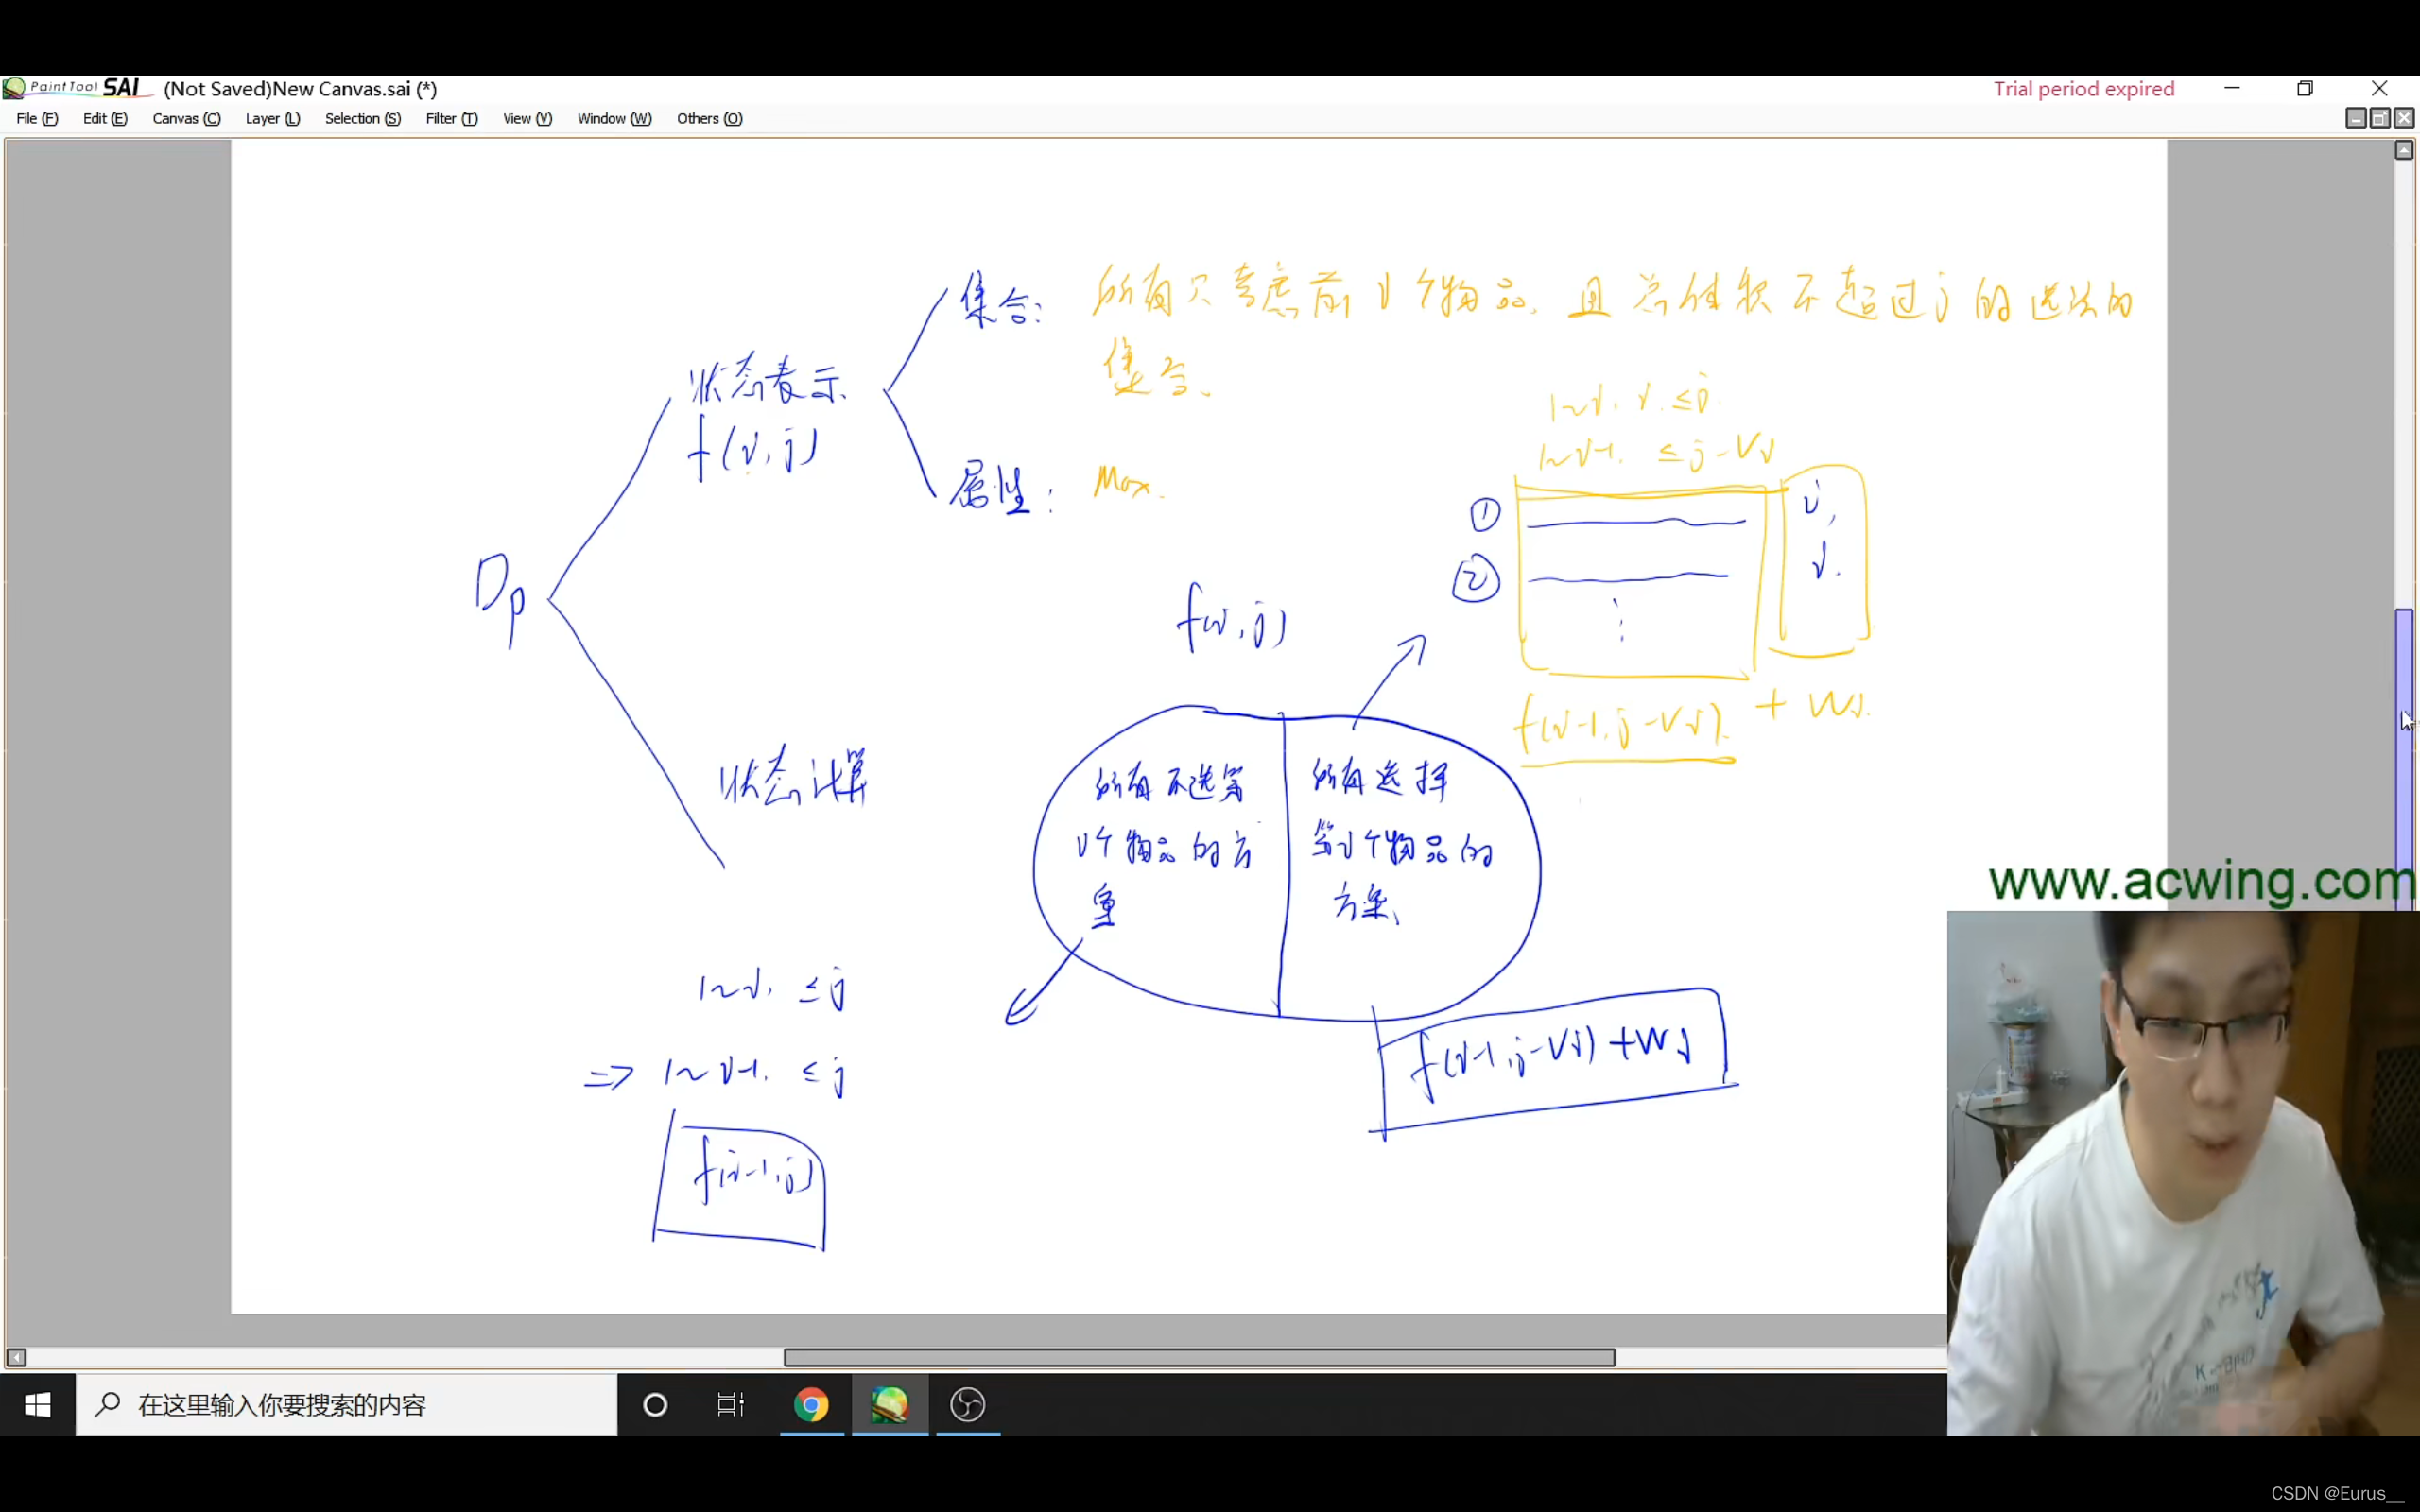 PaintTool SAI (Not Saved)New Canvas.sai (*)
Trial period expired
File (F) Edit (E) Canvas (C) Layer (L) Selection (S) Filter (T) View (V) Window (W) Others (O)
集合: 所有只考虑前i个物品, 且总体积不超过j的选法的
集合、
状态表示
f(i,j)
属性: Max.
1~i, ≤j
1~i-1. ≤j-Vi
① i,
② i.
⋮
f(i-1,j-Vi). + Wi.
Dp
f(i,j)
状态计算
所有不选第
i个物品的方
案
所有选择
第i个物品的
方案、
1~i, ≤j
⇒ 1~i-1. ≤j
f(i-1,j)
f(i-1,j-Vi)+Wi
www.acwing.com
在这里输入你要搜索的内容
CSDN @Eurus__